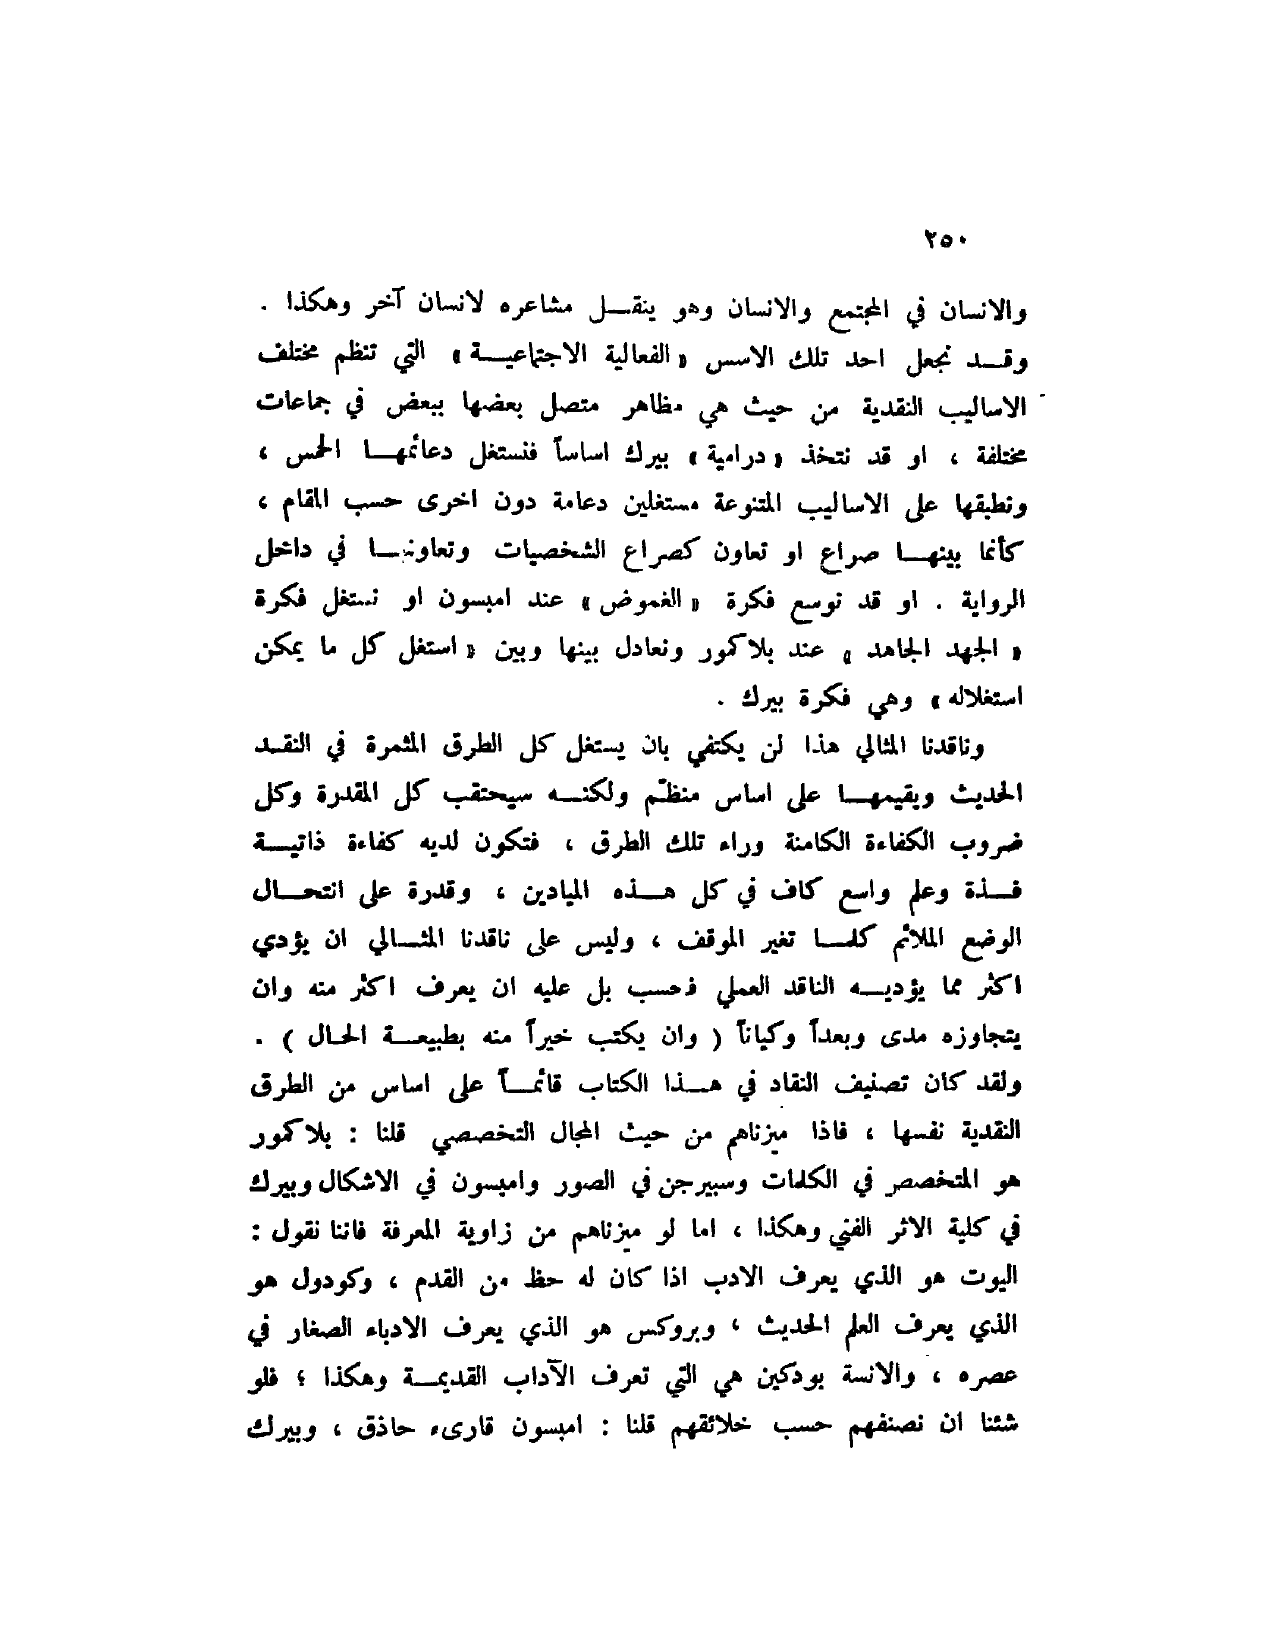 ٢٥٠
والانسان في المجتمع والانسان وهو ينقـــل مشاعره لانسان آخر وهكذا .
وقـــد نجعل احد تلك الاسس « الفعالية الاجتماعيـــة » التي تنظم مختلف
الاساليب النقدية من حيث هي مظاهر متصل بعضها ببعض في جماعات
مختلفة ، او قد نتخذ « درامية » بيرك اساساً فنستغل دعائمهـــا الخمس ،
ونطبقها على الاساليب المتنوعة مستغلين دعامة دون اخرى حسب المقام ،
كأنما بينهـــا صراع او تعاون كصراع الشخصيات وتعاونهـــا في داخل
الرواية . او قد نوسع فكرة « الغموض » عند امبسون او نستغل فكرة
« الجهد الجاهد » عند بلاكمور ونعادل بينها وبين « استغل كل ما يمكن
استغلاله » وهي فكرة بيرك .
وناقدنا المثالي هذا لن يكتفي بان يستغل كل الطرق المثمرة في النقـــد
الحديث ويقيمهـــا على اساس منظّم ولكنـــه سيحتقب كل المقدرة وكل
ضروب الكفاءة الكامنة وراء تلك الطرق ، فتكون لديه كفاءة ذاتيـــة
فـــذة وعلم واسع كاف في كل هـــذه الميادين ، وقدرة على انتحـــال
الوضع الملائم كلمـــا تغير الموقف ، وليس على ناقدنا المثـــالي ان يؤدي
اكثر مما يؤديـــه الناقد العملي فحسب بل عليه ان يعرف اكثر منه وان
يتجاوزه مدى وبعداً وكياناً ( وان يكتب خيراً منه بطبيعـــة الحال ) .
ولقد كان تصنيف النقاد في هـــذا الكتاب قائمـــاً على اساس من الطرق
النقدية نفسها ، فاذا ميزناهم من حيث المجال التخصصي قلنا : بلاكمور
هو المتخصص في الكلمات وسبيرجن في الصور وامبسون في الاشكال وبيرك
في كلية الاثر الفني وهكذا ، اما لو ميزناهم من زاوية المعرفة فاننا نقول :
اليوت هو الذي يعرف الادب اذا كان له حظ من القدم ، وكودول هو
الذي يعرف العلم الحديث ، وبروكس هو الذي يعرف الادباء الصغار في
عصره ، والانسة بودكين هي التي تعرف الآداب القديمـــة وهكذا ؛ فلو
شئنا ان نصنفهم حسب خلائقهم قلنا : امبسون قارىء حاذق ، وبيرك